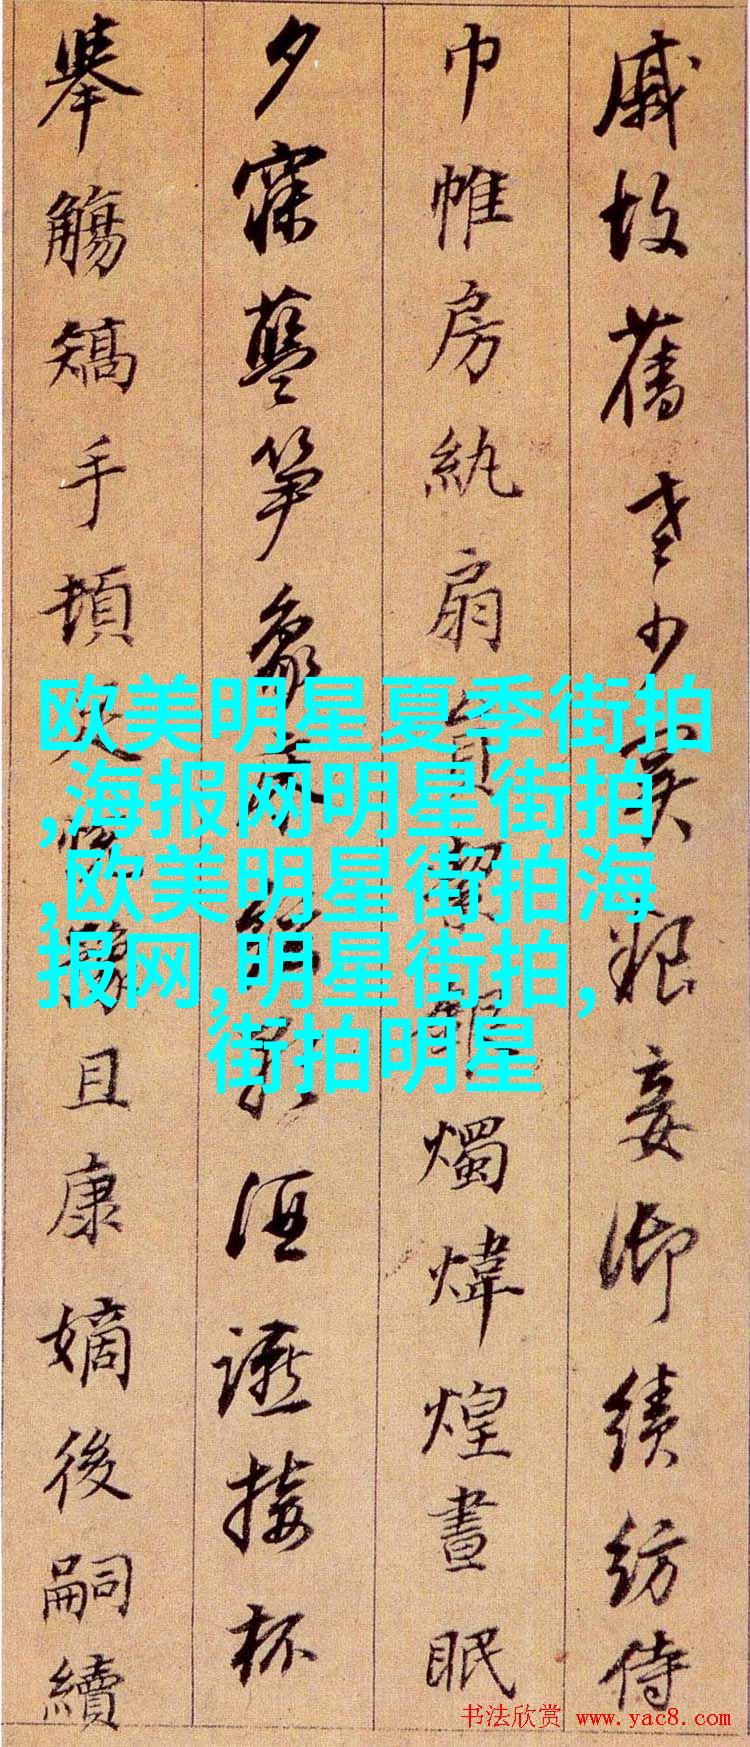 戚故舊老少異粮妾御績紡侍
巾帷房紈扇員潔銀燭煒煌晝眠
夕寐藍笋象床絃歌酒讌接杯
舉觴矯手頓足悅豫且康嫡後嗣續
欧美明星夏季街拍
,海报网明星街拍
,欧美明星街拍海
报网,明星街拍,
街拍明星
书法欣赏 www.yac8.com